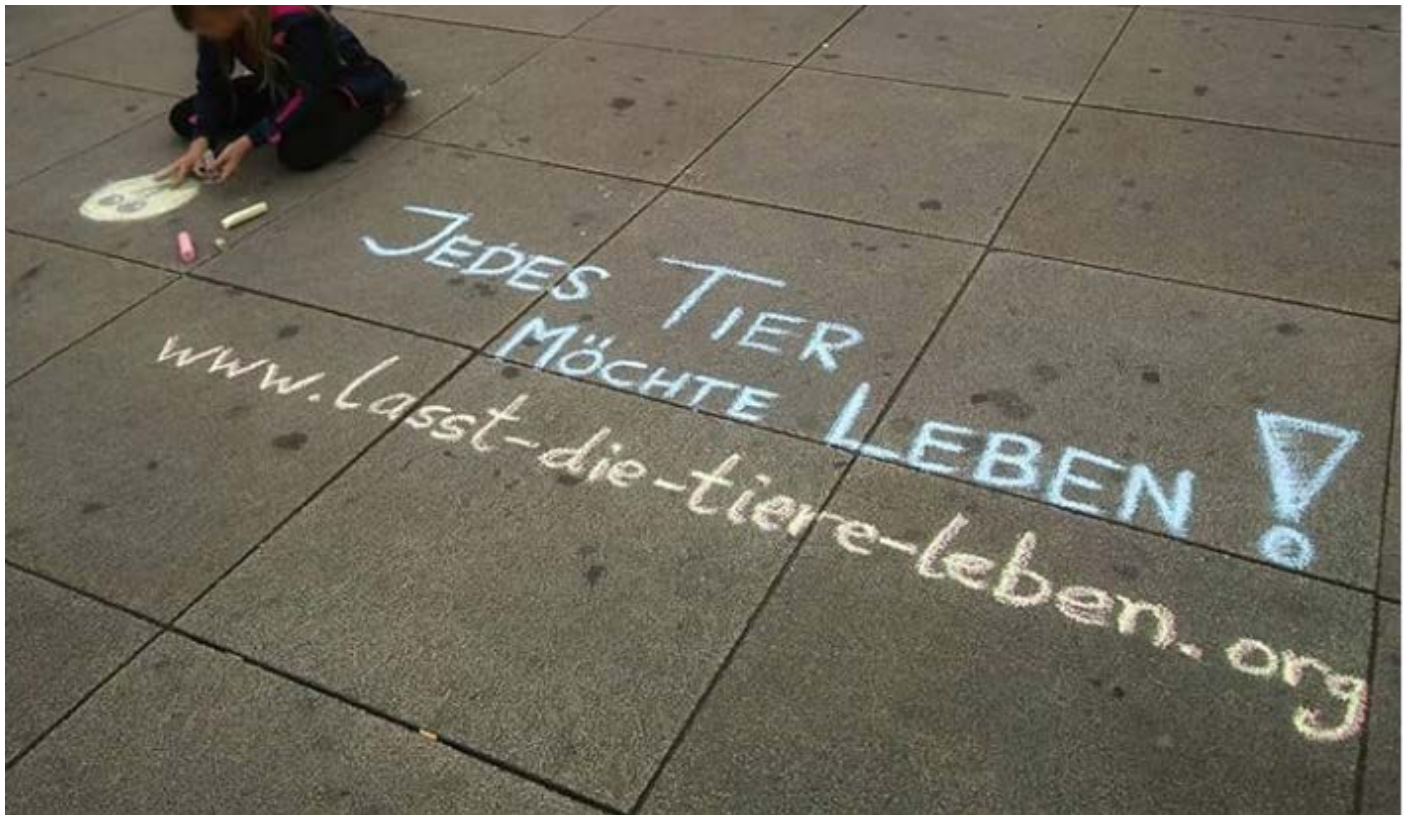 JEDES TIER
MÖCHTE LEBEN!
www.lasst-die-tiere-leben.org